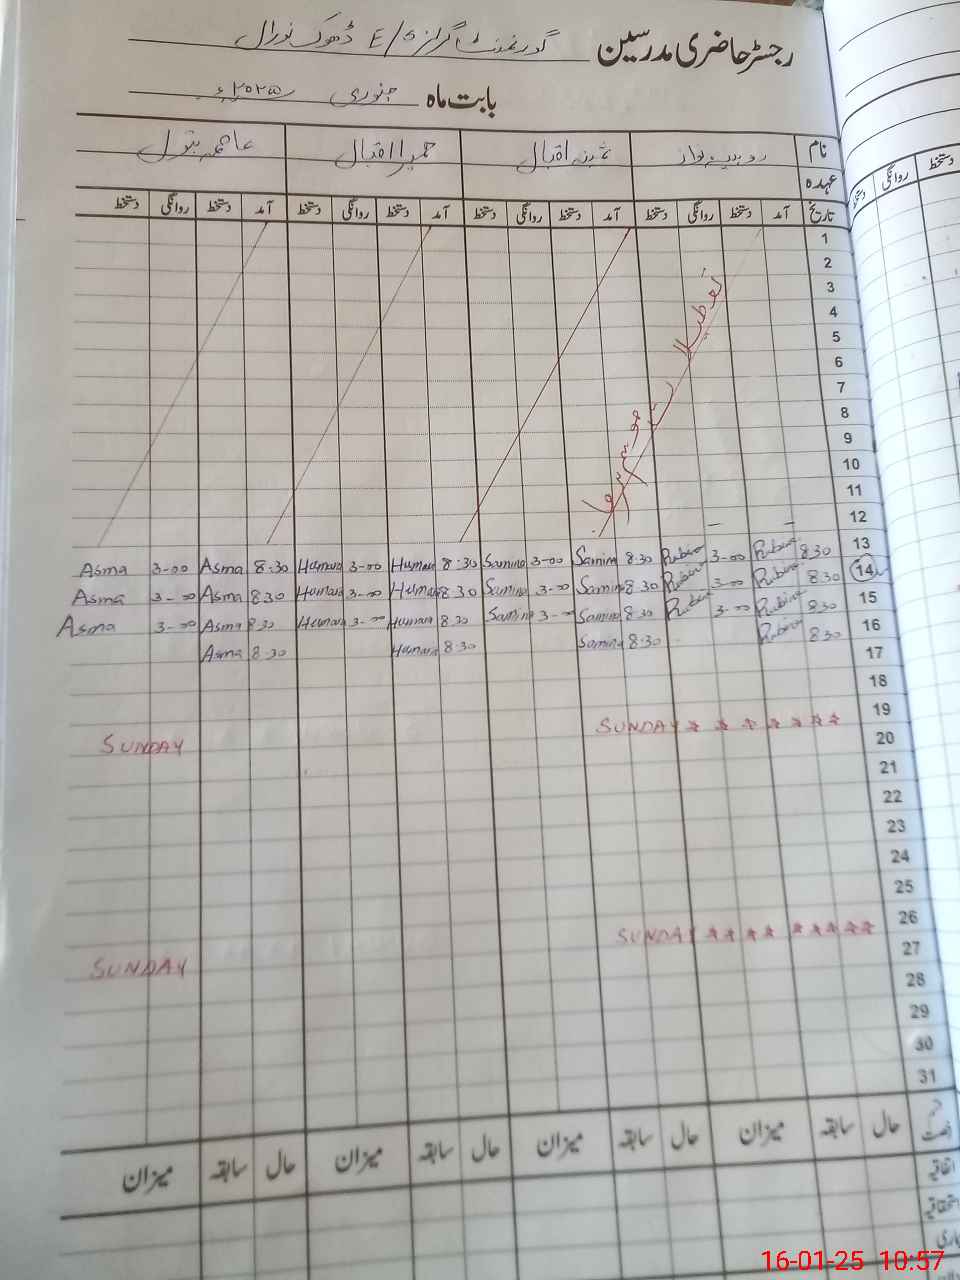 رجسٹر حاضری مدرسین گورنمنٹ گرلز E/S ڈھوک نورال
بابت ماہ جنوری ۲۰۲۵ء
نام روبینہ نواز ثمینہ اقبال حمیرا اقبال عاصمہ بتول
عہدہ
تاریخ آمد دستخط روانگی دستخط آمد دستخط روانگی دستخط آمد دستخط روانگی دستخط آمد دستخط روانگی دستخط
روانگی دستخط
1
2
3
4
5
6
7
8
9
10
11
12
تعطیلات موسم سرما
13 8.30 Rubina 3-00 Rubina 8.30 Samina 3-00 Samina 8.30 Humaira 3-00 Humaira 8.30 Asma 3-00 Asma
14 8.30 Rubina 3-00 Rubina 8.30 Samina 3-00 Samina 8.30 Humaira 3-00 Humaira 8.30 Asma 3-00 Asma
15 8.30 Rubina 3-00 Rubina 8.30 Samina 3-00 Samina 8.30 Humaira 3-00 Humaira 8.30 Asma 3-00 Asma
16 8.30 Rubina 8.30 Samina 8.30 Humaira 8.30 Asma
17
18
19 SUNDAY SUNDAY
20
21
22
23
24
25
26 SUNDAY SUNDAY
27
28
29
30
31
حال سابقہ میزان حال سابقہ میزان حال سابقہ میزان حال سابقہ میزان
اتفاقیہ
استحقاقیہ
16-01-25 10:57